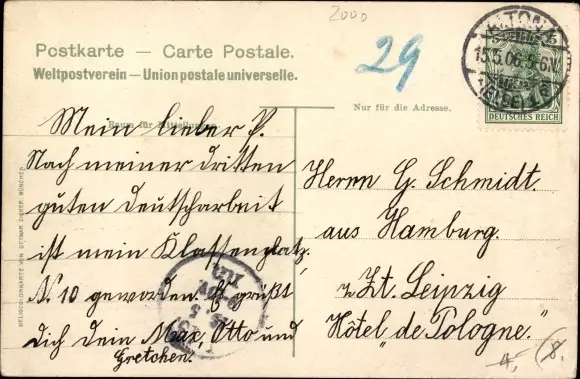 2000
Postkarte — Carte Postale.
Weltpostverein — Union postale universelle.
29
ALTONA
15.5.06. 5-6N.
(ELBE) 1
DEUTSCHES REICH
Nur für die Adresse.
Raum für Mitteilungen
Mein lieber P.
Nach meiner dritten
guten Deutscharbeit
ist mein Klassenplatz
N. 10 geworden. Es grüßt
Dich dein Max, Otto und
Gretchen.
Herrn G. Schmidt.
aus Hamburg.
z. Zt. Leipzig
Hôtel „de Pologne."
4, 8.
HELIOCOLORKARTE VON OTTMAR ZIEHER, MÜNCHEN